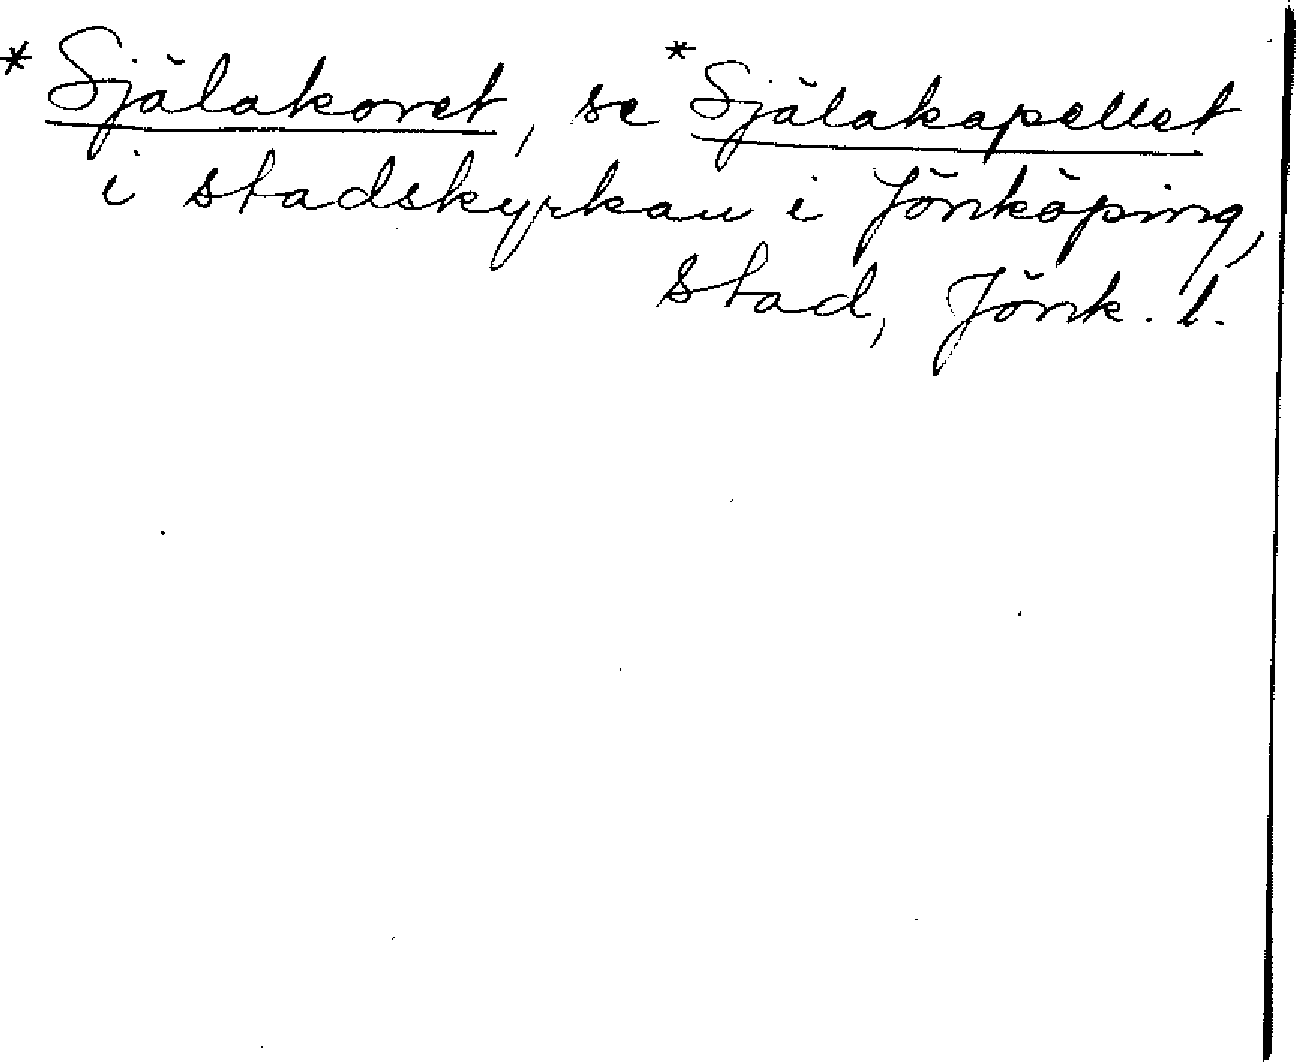 *Själakoret, se *Själakapellet
i stadskyrkan i Jönköping,
stad, Jönk. l.